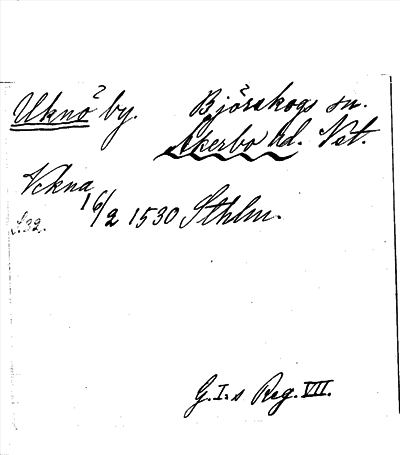 Uknö by. Björskogs sn.
Åkerbo hd. Vst.
Vckna
16/2 1530 Sthlm.
S. 32.
G. I:s Reg. VII.